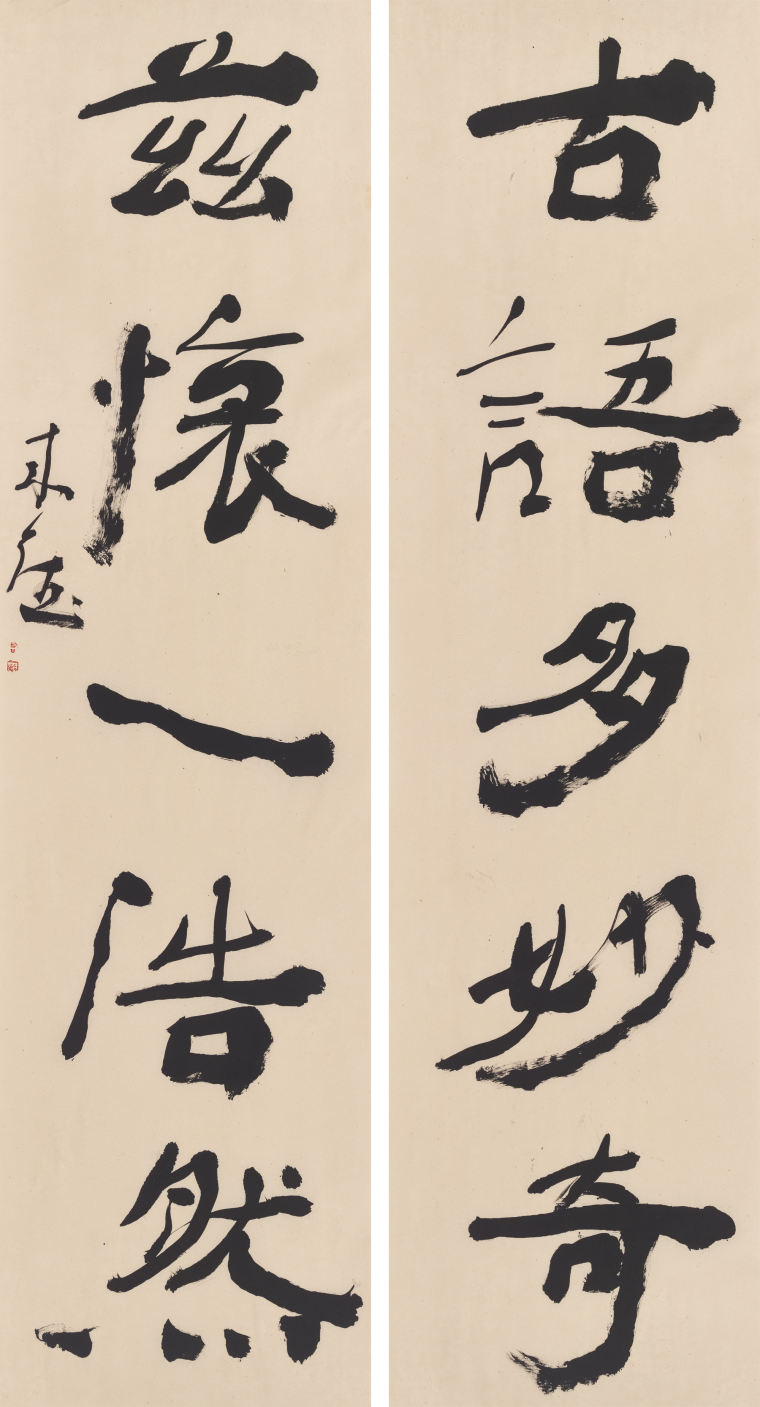 古語多妙奇
茲懷一浩然